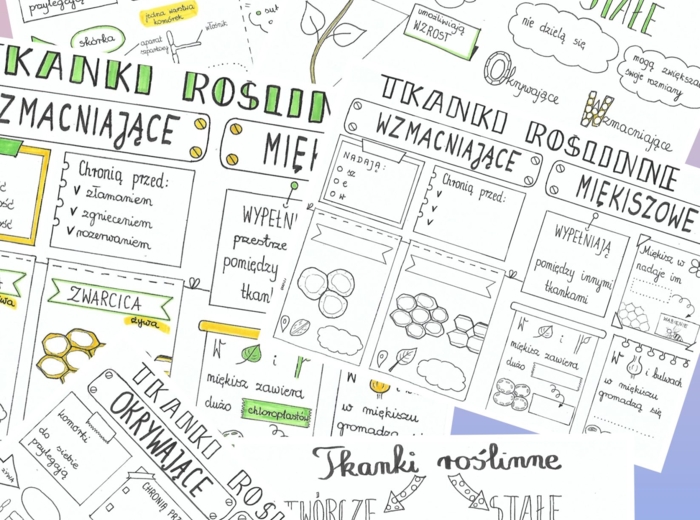 przylegają
jedna warstwa
komórek
włośnik
skórka
aparat
szparkowy
umożliwiają
WZROST
STAŁE
nie dzielą się
mogą zwiększać
swoje rozmiary
Okrywające
Wzmacniające
TKANKI ROŚLIN
ZMACNIAJĄCE
MIĘK
Chronią przed:
złamaniem
zgnieceniem
rozerwaniem
WYPEŁNI
przestrze
pomiędzy
tkan
ZWARCICA
żywa
W i
miękisz zawiera
dużo chloroplastów
w miękiszu
gromadzą
TKANKI ROŚLINNE
WZMACNIAJĄCE
MIĘKISZOWE
NADAJĄ:
Chronią przed:
WYPEŁNIAJĄ
pomiędzy innymi
tkankami
Miękisz w
nadaje im
W i
miękisz zawiera
dużo
W i bulwach
w miękiszu
gromadzą się
TKANKI ROŚ
OKRYWAJĄCE
komórki
do siebie
przylegają
CHRONIĄ PRZ
Tkanki roślinne
TWÓRCZE
STAŁE